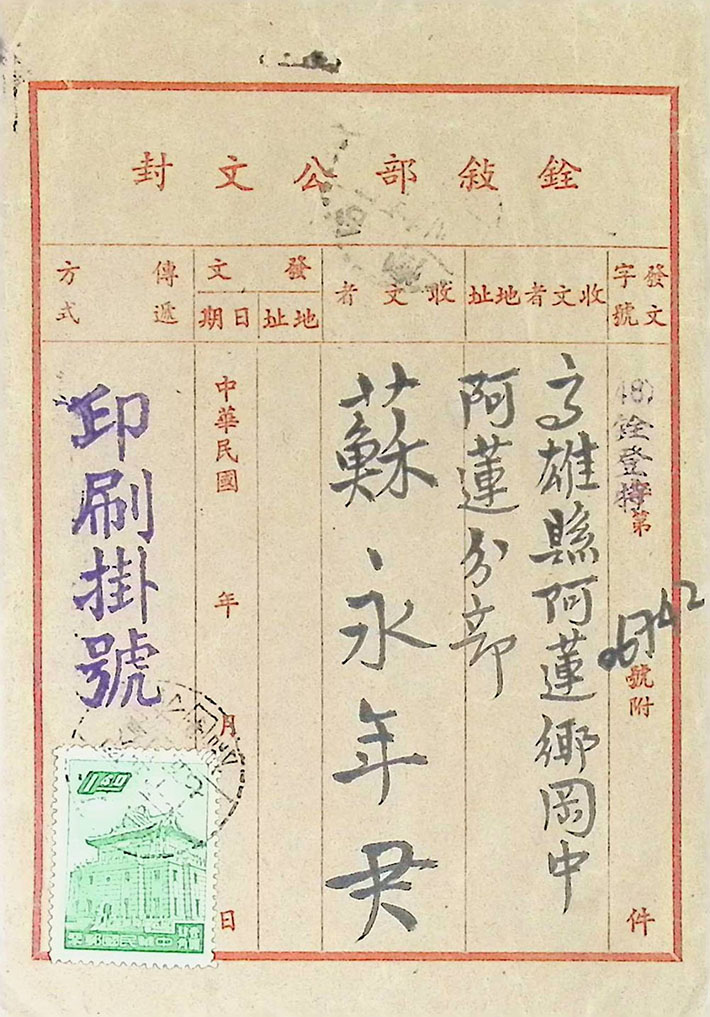 銓敍部公文封
發文字號
收文者地址
收文者
發文
地址
日期
傳遞方式
(48)銓登特字第
號附
件
高雄縣阿蓮鄉岡中
阿蓮分部
蘇永年君
中華民國 年 月 日
印刷掛號
1.60
中華民國郵票